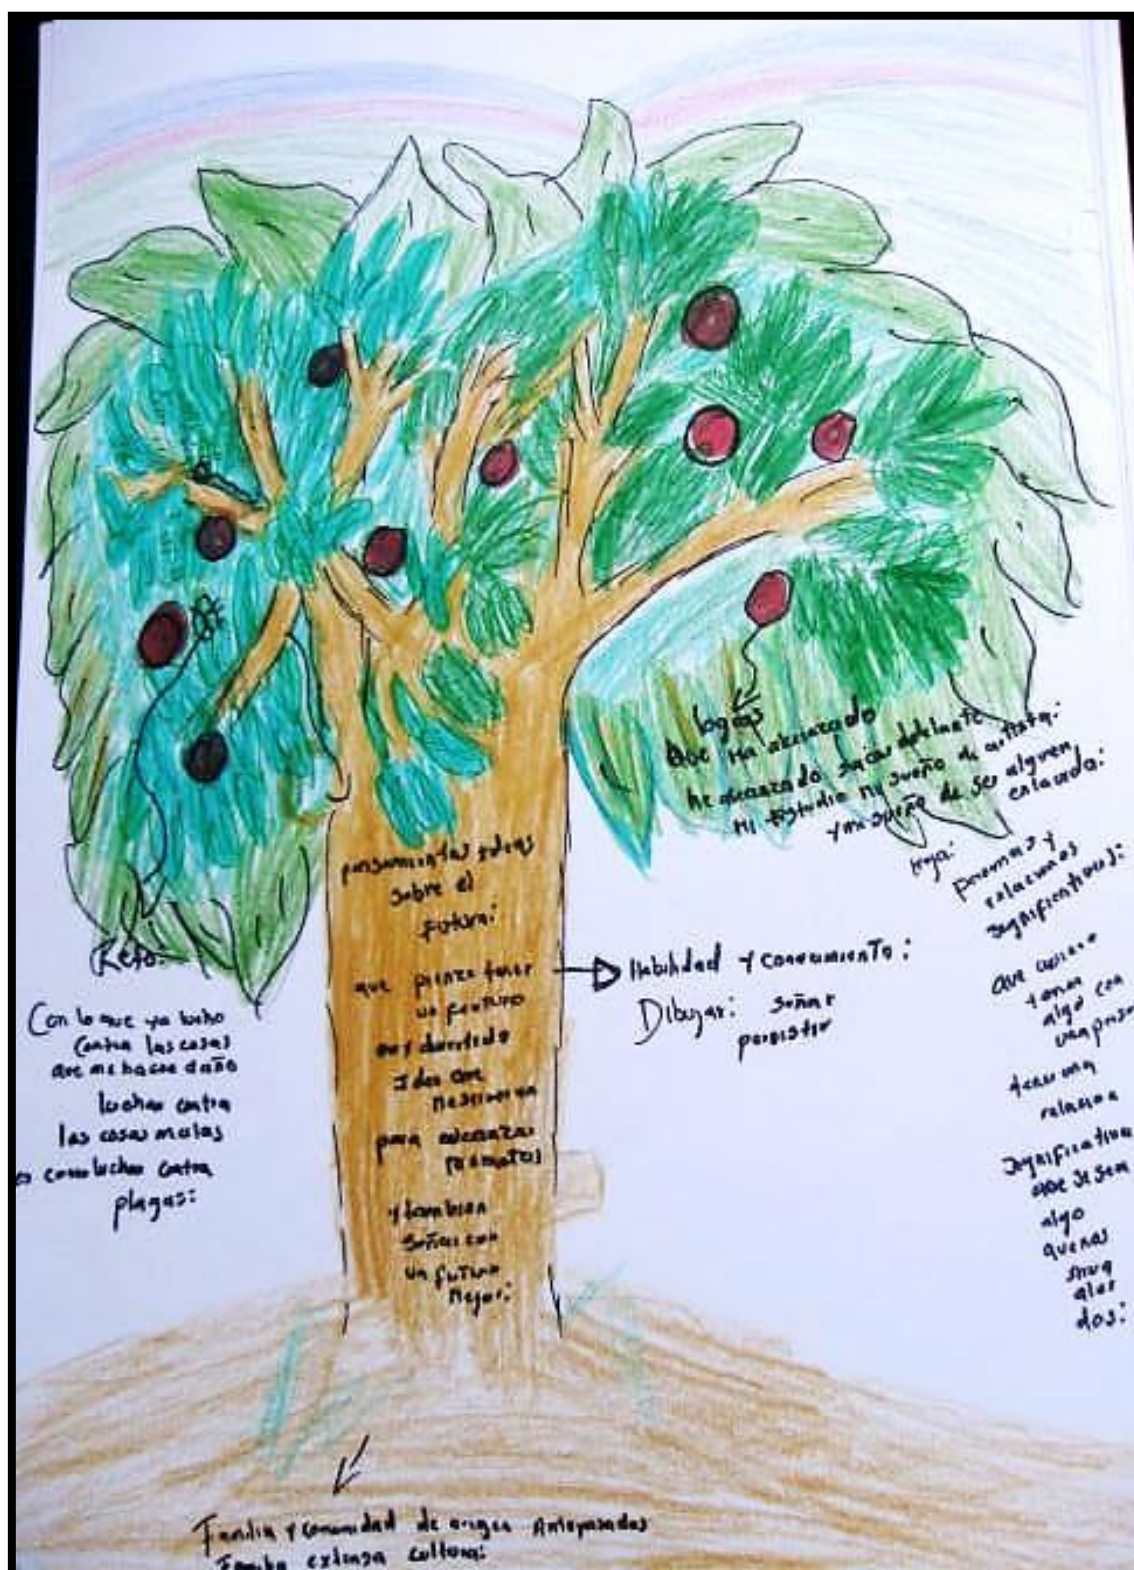 logros
Que ha alcanzado
he alcanzado sacar adelante
Mi Estudio mi sueño de artista:
y mi sueño de ser alguien
en la vida:
hoja:
personas y
relaciones
significativas:
que
tener
algo con
tener una
relacion
significativa
que se sea
algo
que nos
a los
dos:
pensamientos ideas
sobre el
futuro:
que pienzo tener
un futuro
muy
Idea que
para alcanzar
y tambien
soñar con
un futuro
mejor:
Habilidad y conocimiento:
Dibujar: soñar
persistir
Reto:
Con lo que yo lucho
Contra las cosas
que me hacen daño
luchar contra
las cosas malas
es como luchar contra
plagas:
Familia y comunidad de origen Antepasados
Familia extensa cultura: